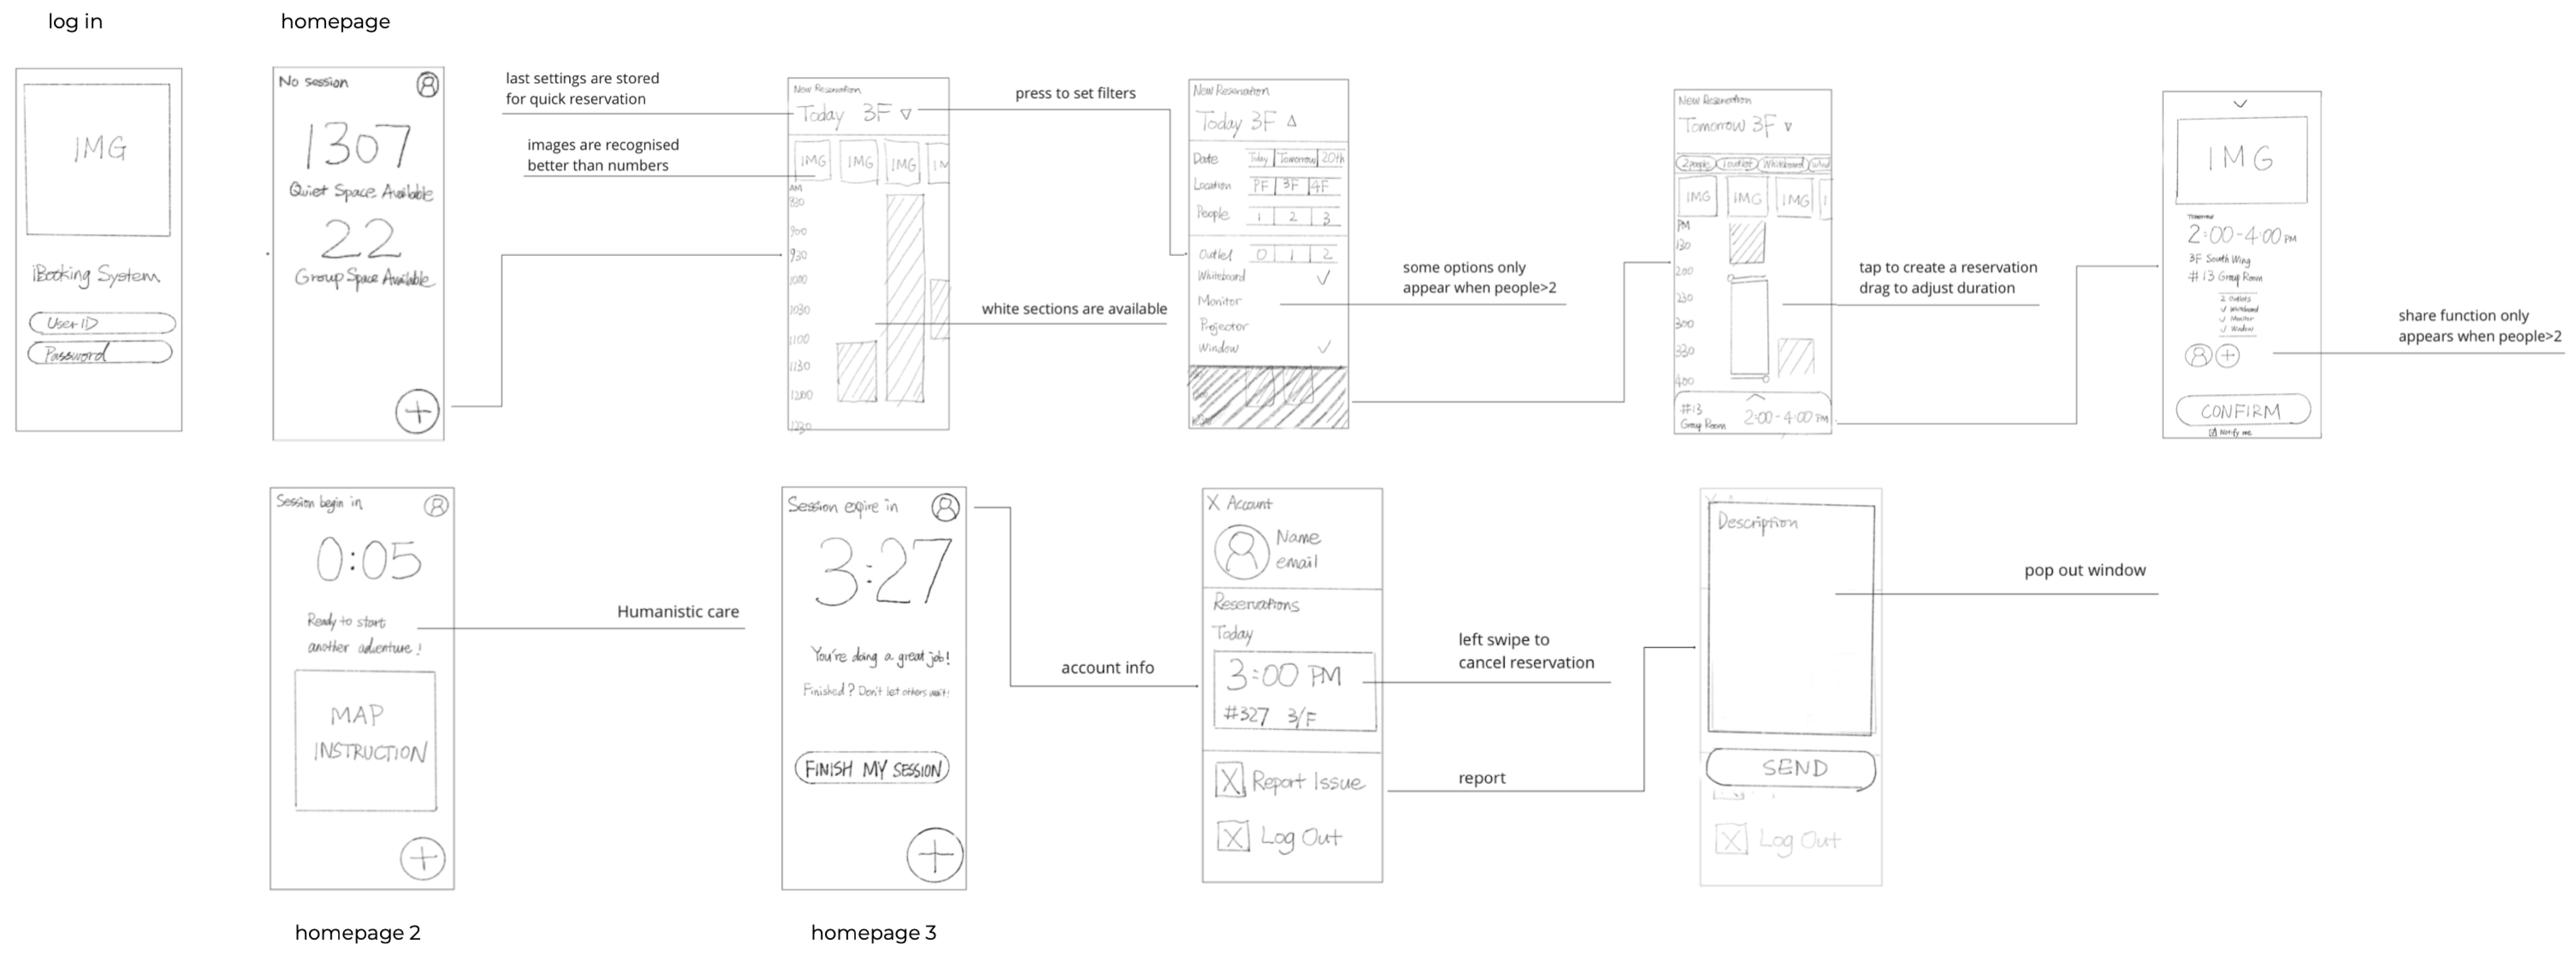 log in
IMG
iBooking System
User ID
Password
homepage
No session
1307
Quiet Space Available
22
Group Space Available
+
last settings are stored
for quick reservation
images are recognised
better than numbers
New Reservation
Today 3F
IMG IMG IMG IM
AM
830
900
930
1000
1030
1100
1130
1200
1230
press to set filters
white sections are available
New Reservation
Today 3F
Date Today Tomorrow 20th
Location PF 3F 4F
People 1 2 3
Outlet 0 1 2
Whiteboard ✓
Monitor
Projector
Window ✓
some options only
appear when people>2
New Reservation
Tomorrow 3F
2 people 1 outlet Whiteboard Wind
IMG IMG IMG I
PM
130
200
230
300
330
400
#13
Group Room
2:00-4:00 PM
tap to create a reservation
drag to adjust duration
IMG
Tomorrow
2:00-4:00 PM
3F South Wing
#13 Group Room
2 Outlets
✓ Whiteboard
✓ Monitor
✓ Window
+
CONFIRM
Notify me
share function only
appears when people>2
Session begin in
0:05
Ready to start
another adventure!
MAP
INSTRUCTION
+
homepage 2
Humanistic care
Session expire in
3:27
You're doing a great job!
Finished? Don't let others wait!
FINISH MY SESSION
+
homepage 3
account info
X Account
Name
email
Reservations
Today
3:00 PM
#327 3/F
X Report Issue
X Log Out
left swipe to
cancel reservation
report
Description
SEND
X Log Out
pop out window